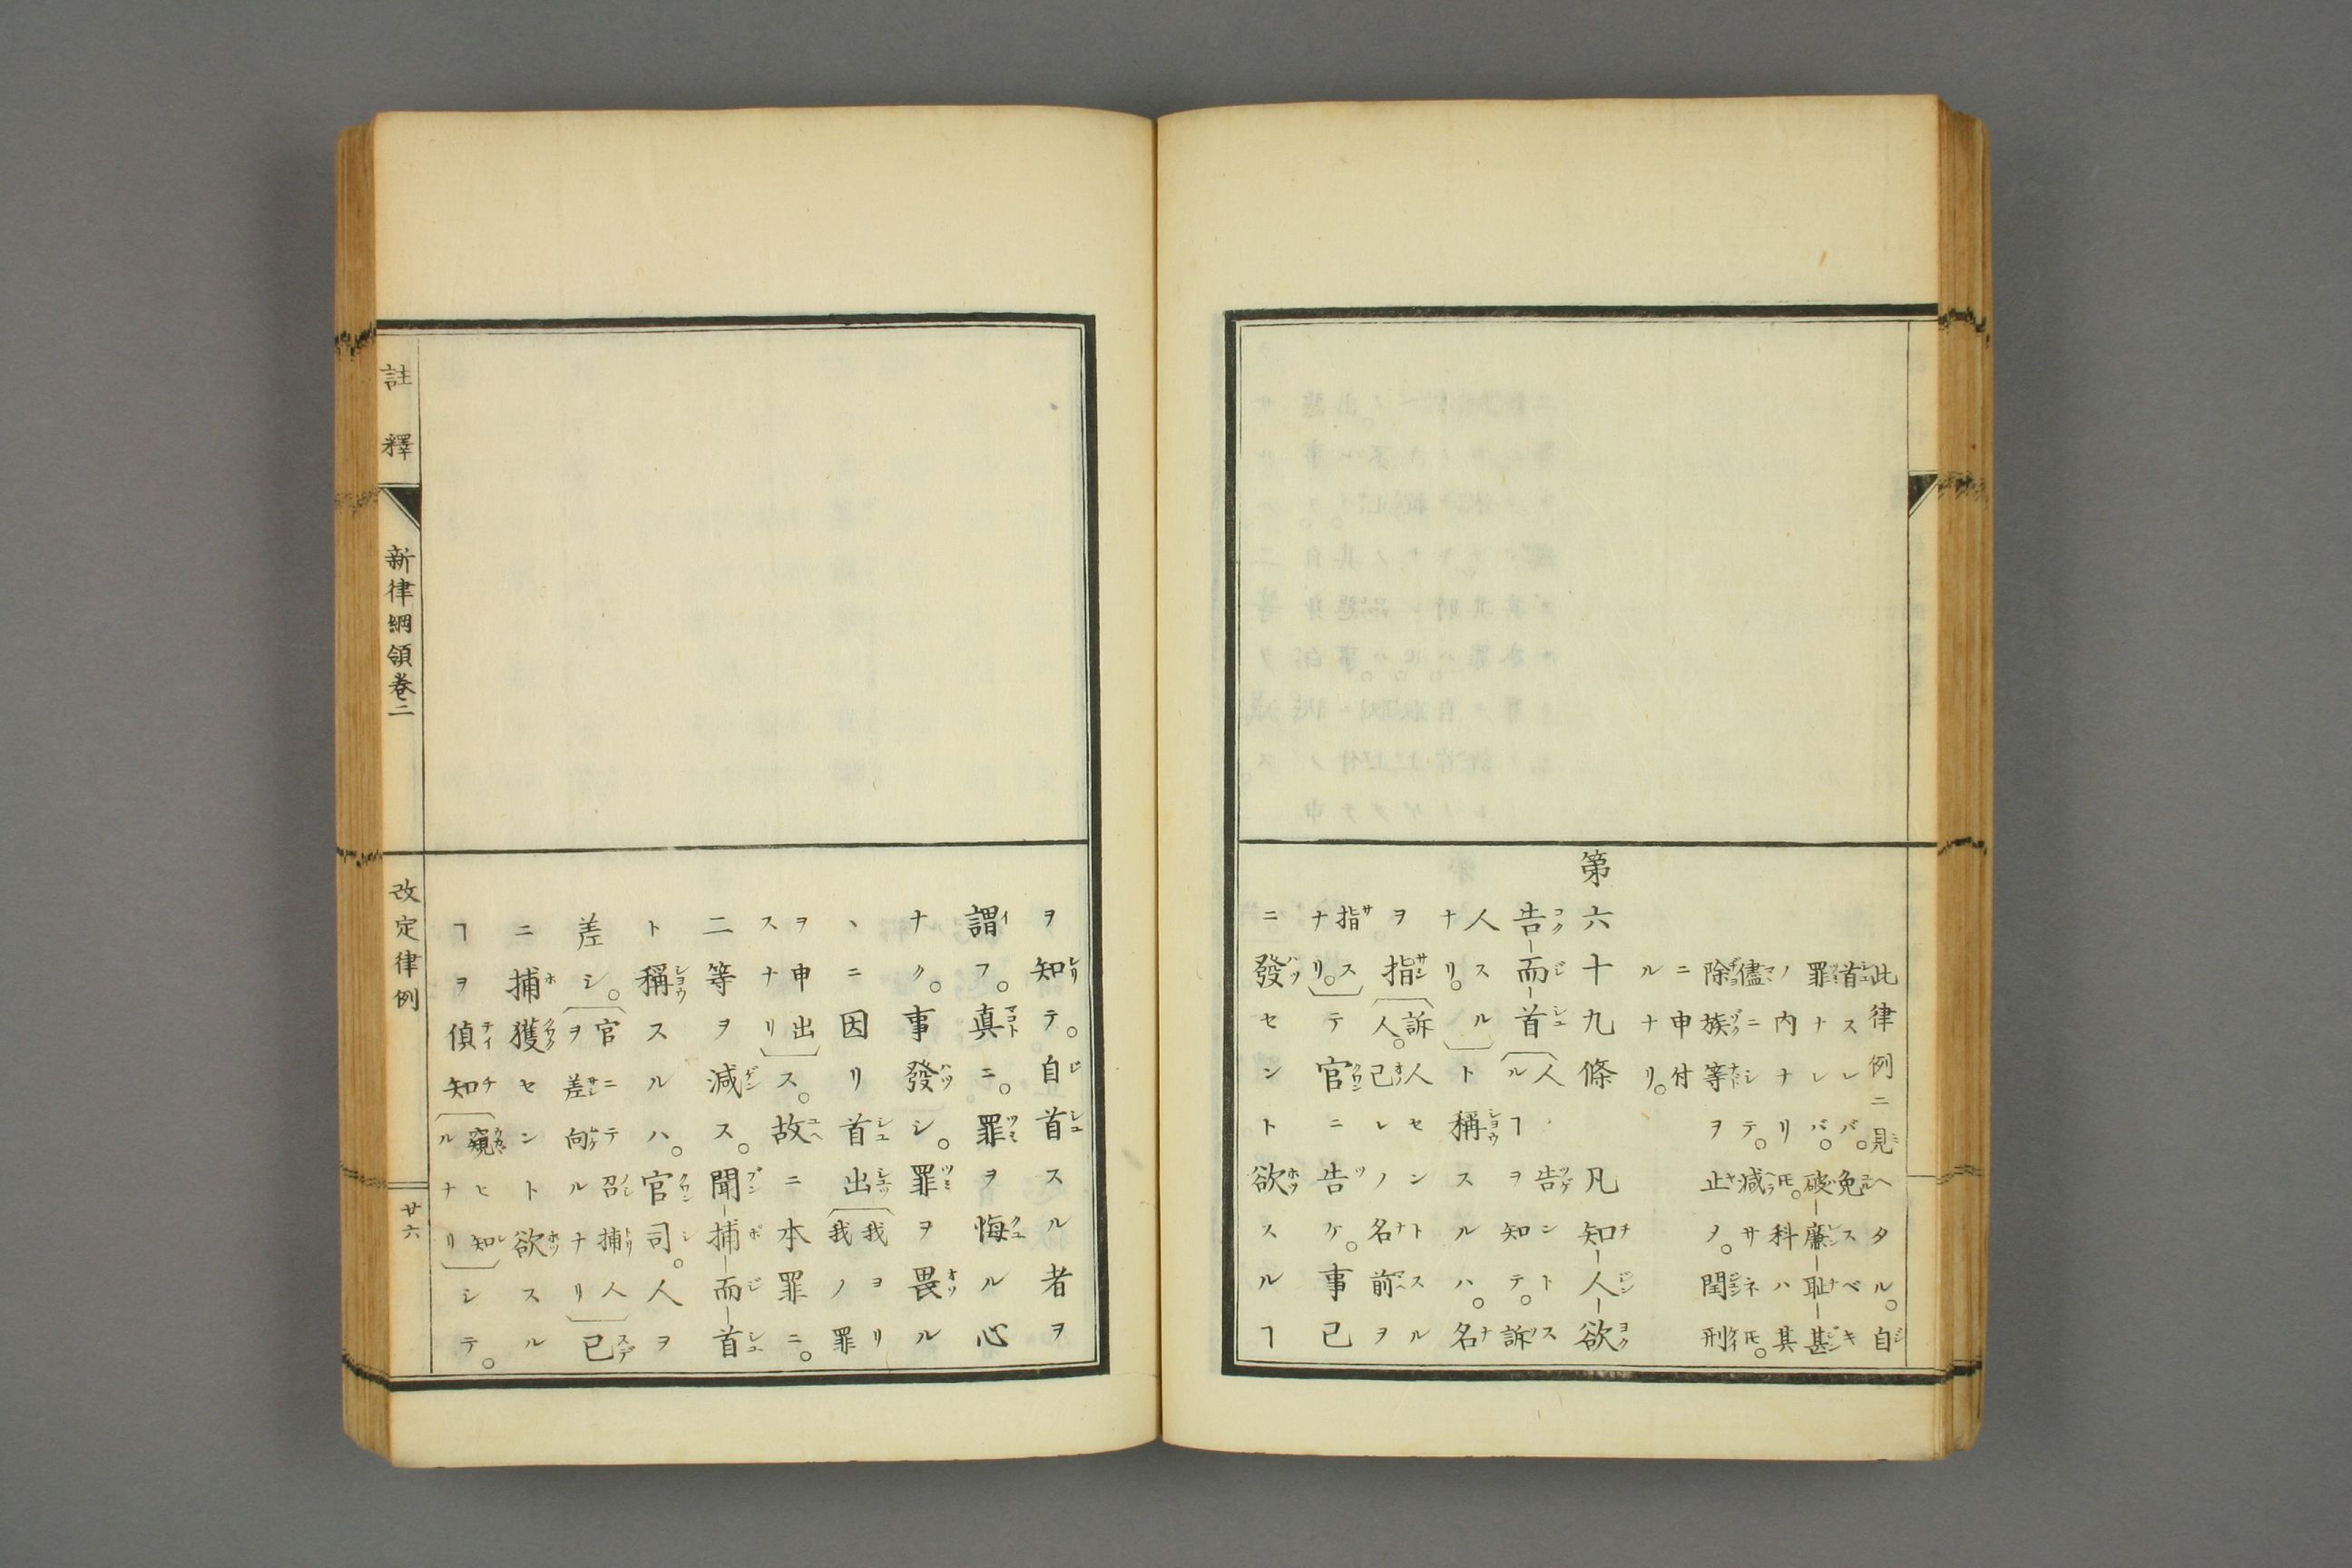 此律例ニ見ヘタル。自
首スレバ。免スベキ
罪ナレバ。破廉耻甚
ノ内ナリ𪜈。科ハ其
儘ニシテ。減サネ𪜈。
除族等ヲ止ノ。閏刑
ニ申付
ルナリ。
第六十九條凡知人欲
告而首〔人ルヿヲ告ント知テ。訴ス
人スルナリ。〕ト稱スルハ。名
ヲ指〔訴人セントスル人。己レノ名前ヲ
指スナリ。〕テ官ニ告ケ。事已
ニ發セント欲スルヿ
ヲ知テ。自首スル者ヲ
謂フ。真ニ。罪ヲ悔ル心
ナク。事發シ。罪ヲ畏ル
、ニ因リ首出〔我ヨリ我ノ罪
ヲ申出スナリ〕ス。故ニ本罪ニ。
二等ヲ減ス。聞捕而首
ト稱スルハ。官司。人ヲ
差シ。〔官ニテ召捕人ヲ差向ルナリ〕已
ニ捕獲セント欲スル
ヿヲ偵知〔窺ヒ知ルナリ〕シテ。
註釋
新律綱領卷二
改定律例
廿六